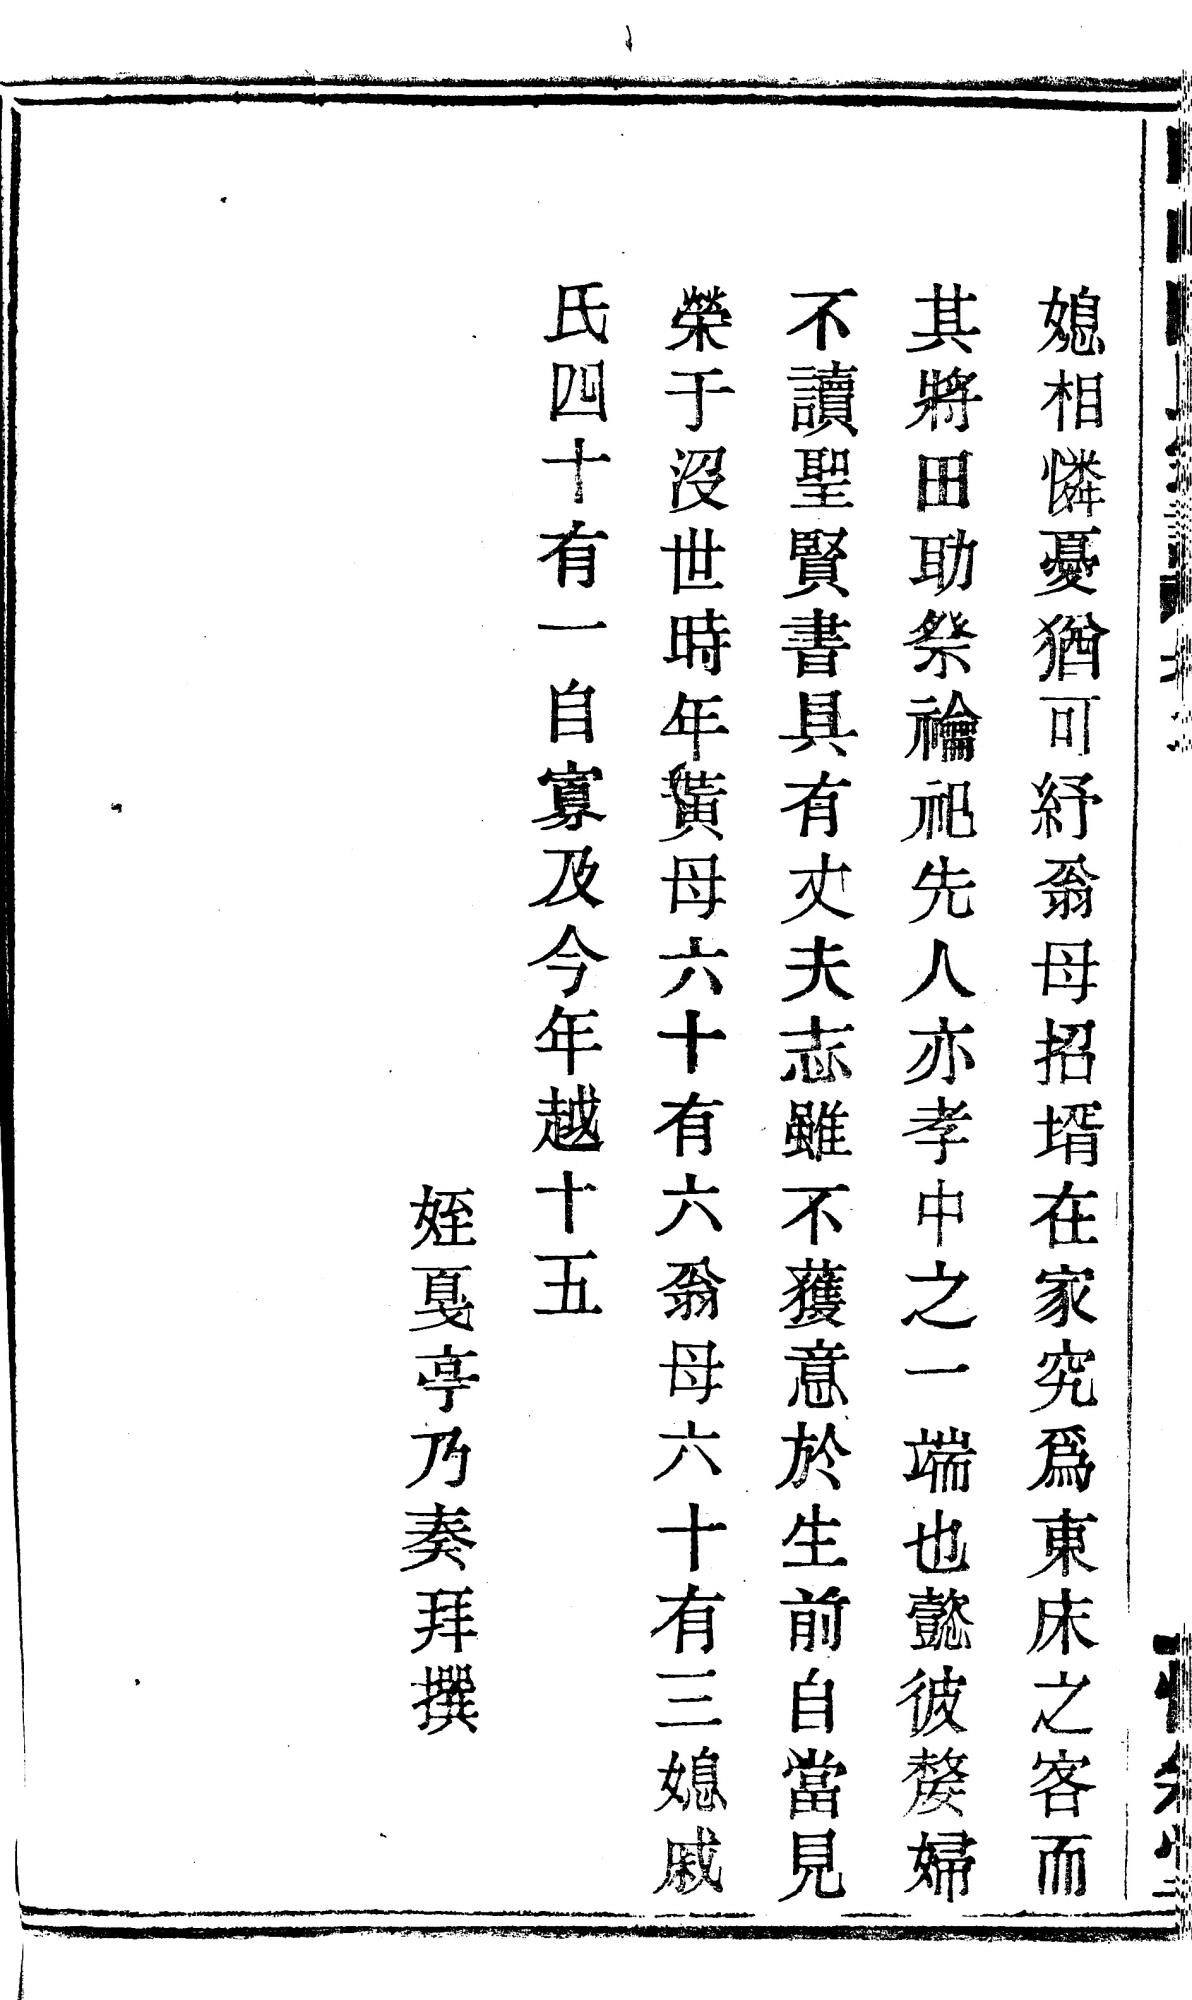 媳相憐憂猶可紓翁母招壻在家究爲東床之客而
其將田助祭禴祀先人亦孝中之一端也懿彼嫠婦
不讀聖賢書具有丈夫志雖不獲意於生前自當見
榮于沒世時年黃母六十有六翁母六十有三媳戚
氏四十有一自寡及今年越十五
姪戛亭乃奏拜撰